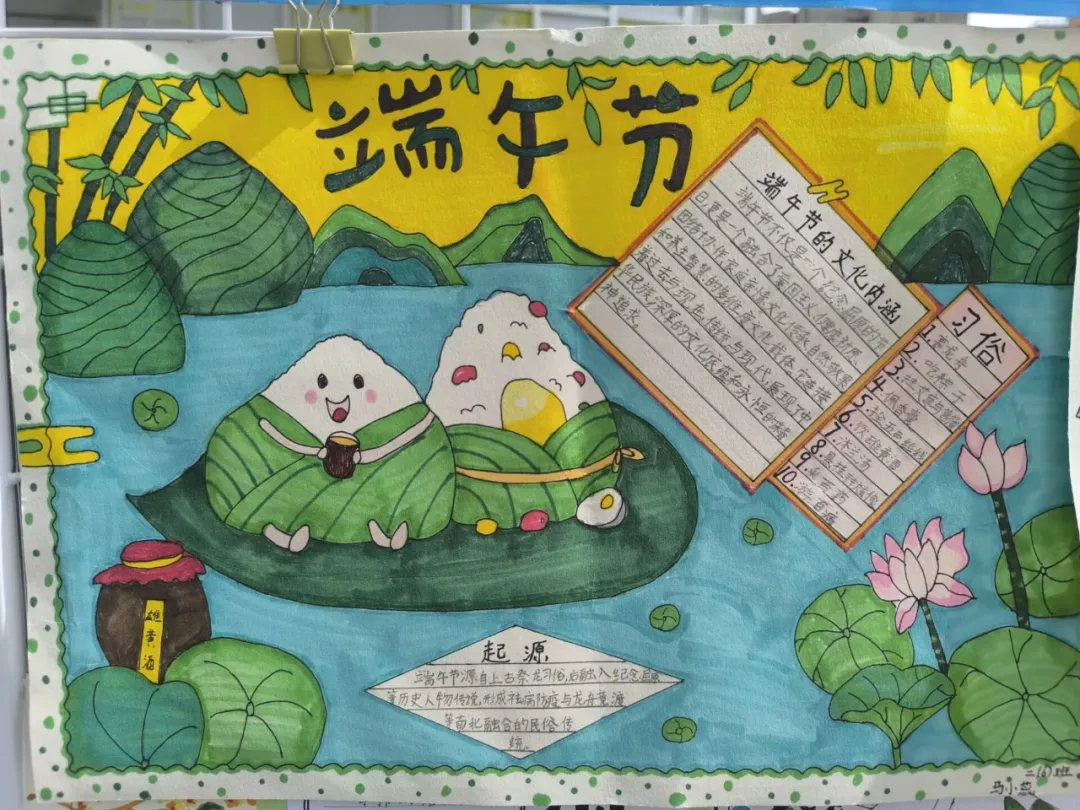 端午节
端午节的文化内涵
端午节不仅是一个纪念屈原的节
日,更是一个融合了爱国主义、健康
团结协作、家庭亲情、文化传承、自然敬畏
和养生智慧的多维文化载体。它连接
着过去与现在,传统与现代,展现了中
华民族深厚的文化底蕴和永恒的精
神追求。
习俗
1.赛龙舟
2.吃粽子
3.挂艾草与菖蒲
4.佩香囊
5.拴五色丝线
6.饮雄黄酒
7.沐兰汤
8.悬挂钟馗像
9.采百药
10.
起源
端午节源自上古祭龙习俗,后融入纪念屈原
等历史人物传说,形成祛病防疫与龙舟竞渡
等南北融合的民俗传
统。
雄黄酒
二(6)班
马小蕊